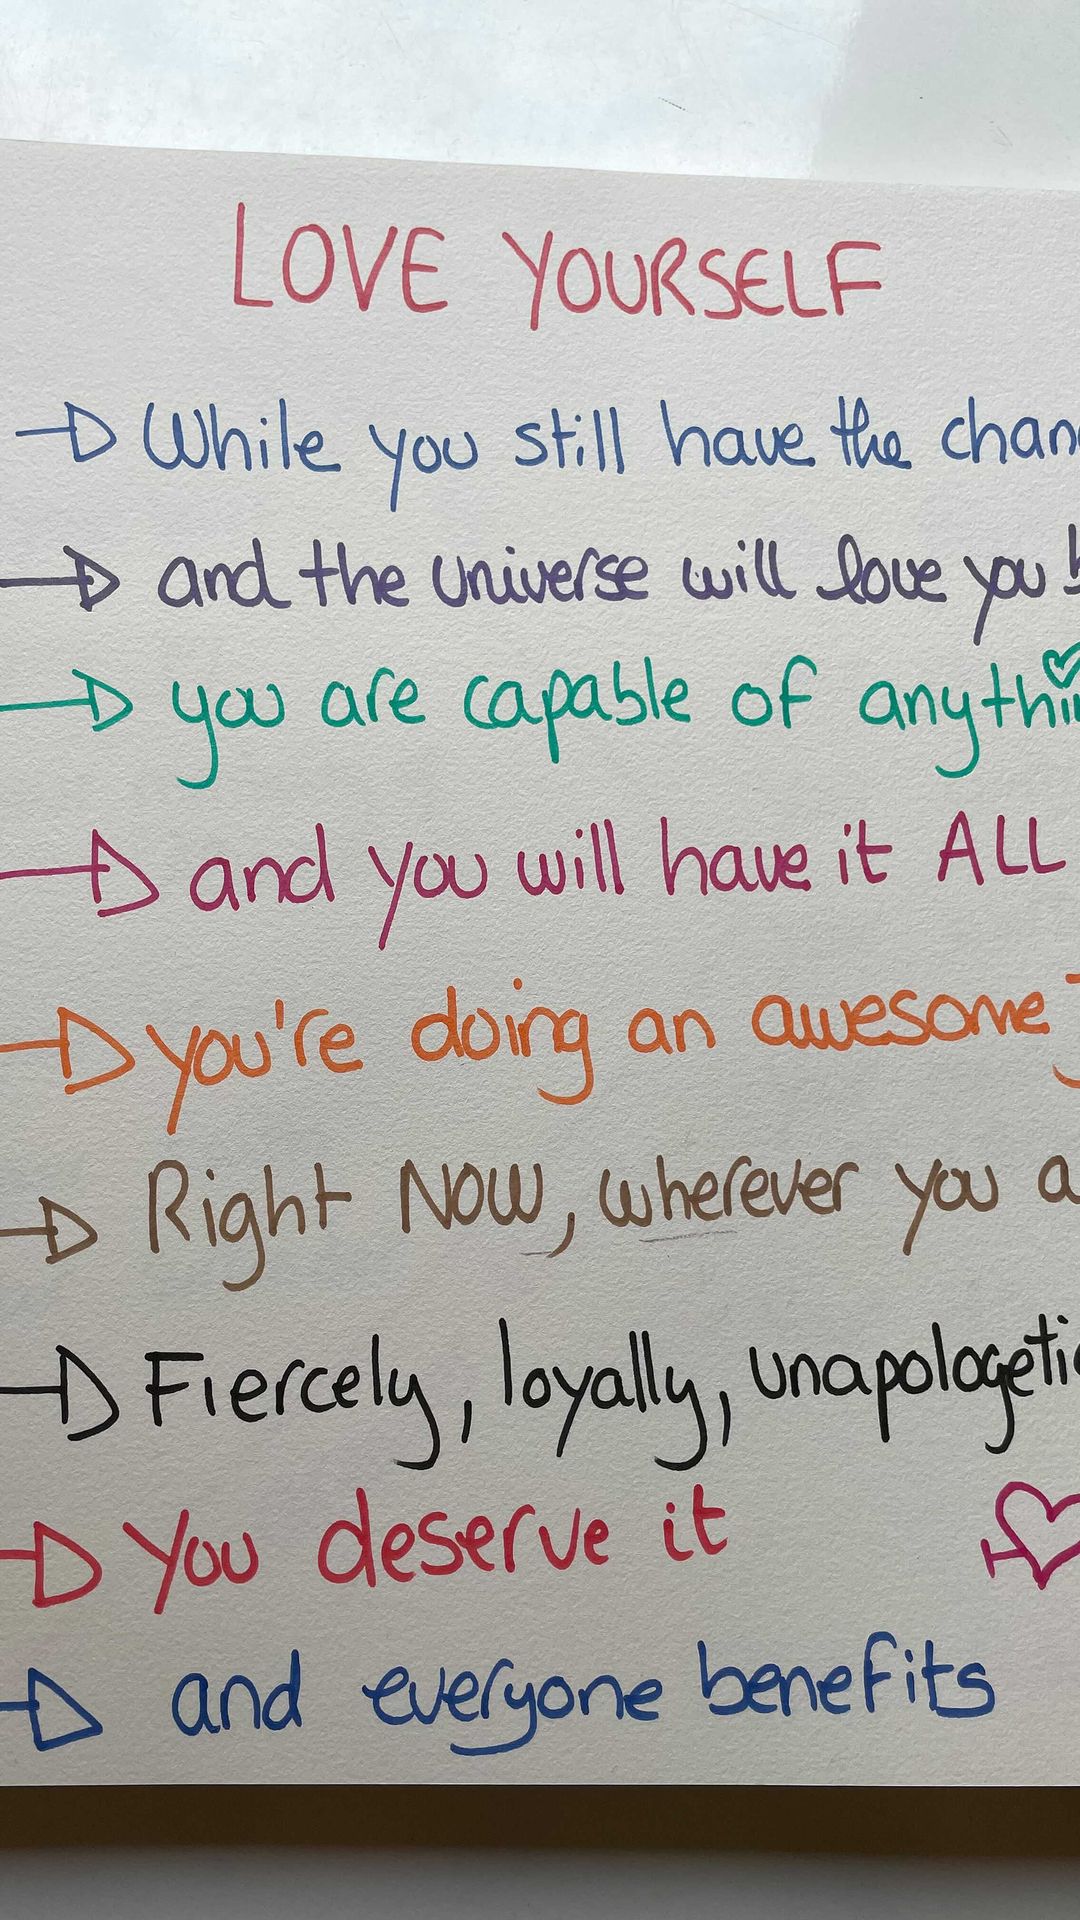 LOVE YOURSELF
While you still have the
and the universe will love you
you are capable of
and you will have it ALL
you're doing an awesome
Right NOW, wherever you
Fiercely, loyally,
You deserve it
and everyone benefits